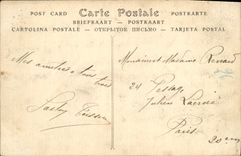 POST CARD Carte Postale POSTKARTE
BRIEFKAART — POSTKARTAART
CARTOLINA POSTALE — ОТКРЫТОЕ ПИСЬМО — TARJETA POSTAL
Mes amitiés à tous trois
Monsieur Madame Renard
24 Passage
Julien Lacroix
Paris
20 em